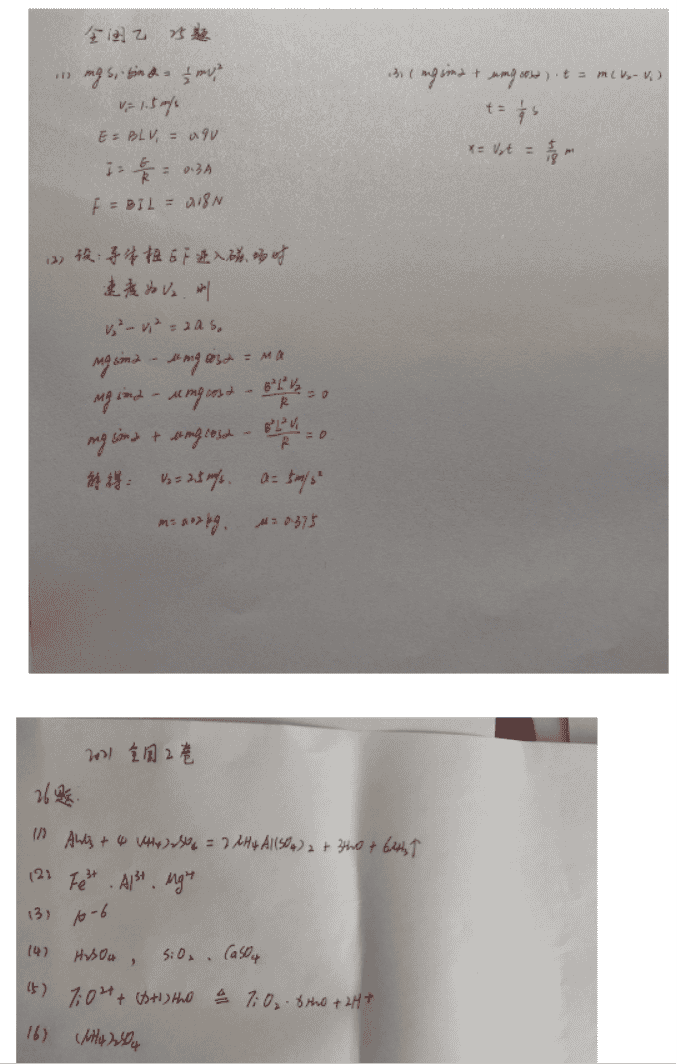 全国乙 25题
(1) mgs₁·sinα = ½mv₁²
v₁=1.5m/s
E = BLV₁ = 0.9V
I = E/R = 0.3A
F = BIL = 0.18N
(2) 设:导体棒EF进入磁场时
速度为V₂,则
v₂² - v₁² = 2as₀
mgsinα - μmgcosα = Ma
mgsinα - μmgcosα - B²L²V₂/R = 0
mgsinα + μmgcosα - B²L²V₁/R = 0
解得: V₂=2.5m/s, a= 5m/s²
m=0.02kg, μ=0.375
(3)(mgsinα + μmgcosα)·t = m(V₂-V₁)
t = 1/9 s
x = V₂t = 5/18 m
2021 全国乙卷
26题.
(1) Al₂O₃ + 4(NH₄)₂SO₄ = 2NH₄Al(SO₄)₂ + 3H₂O + 6NH₃↑
(2) Fe³⁺、Al³⁺、Mg²⁺
(3) 10⁻⁶
(4) H₂SO₄, SiO₂、CaSO₄
(5) TiO²⁺ + (x+1)H₂O ≜ TiO₂·xH₂O + 2H⁺
(6) (NH₄)₂SO₄